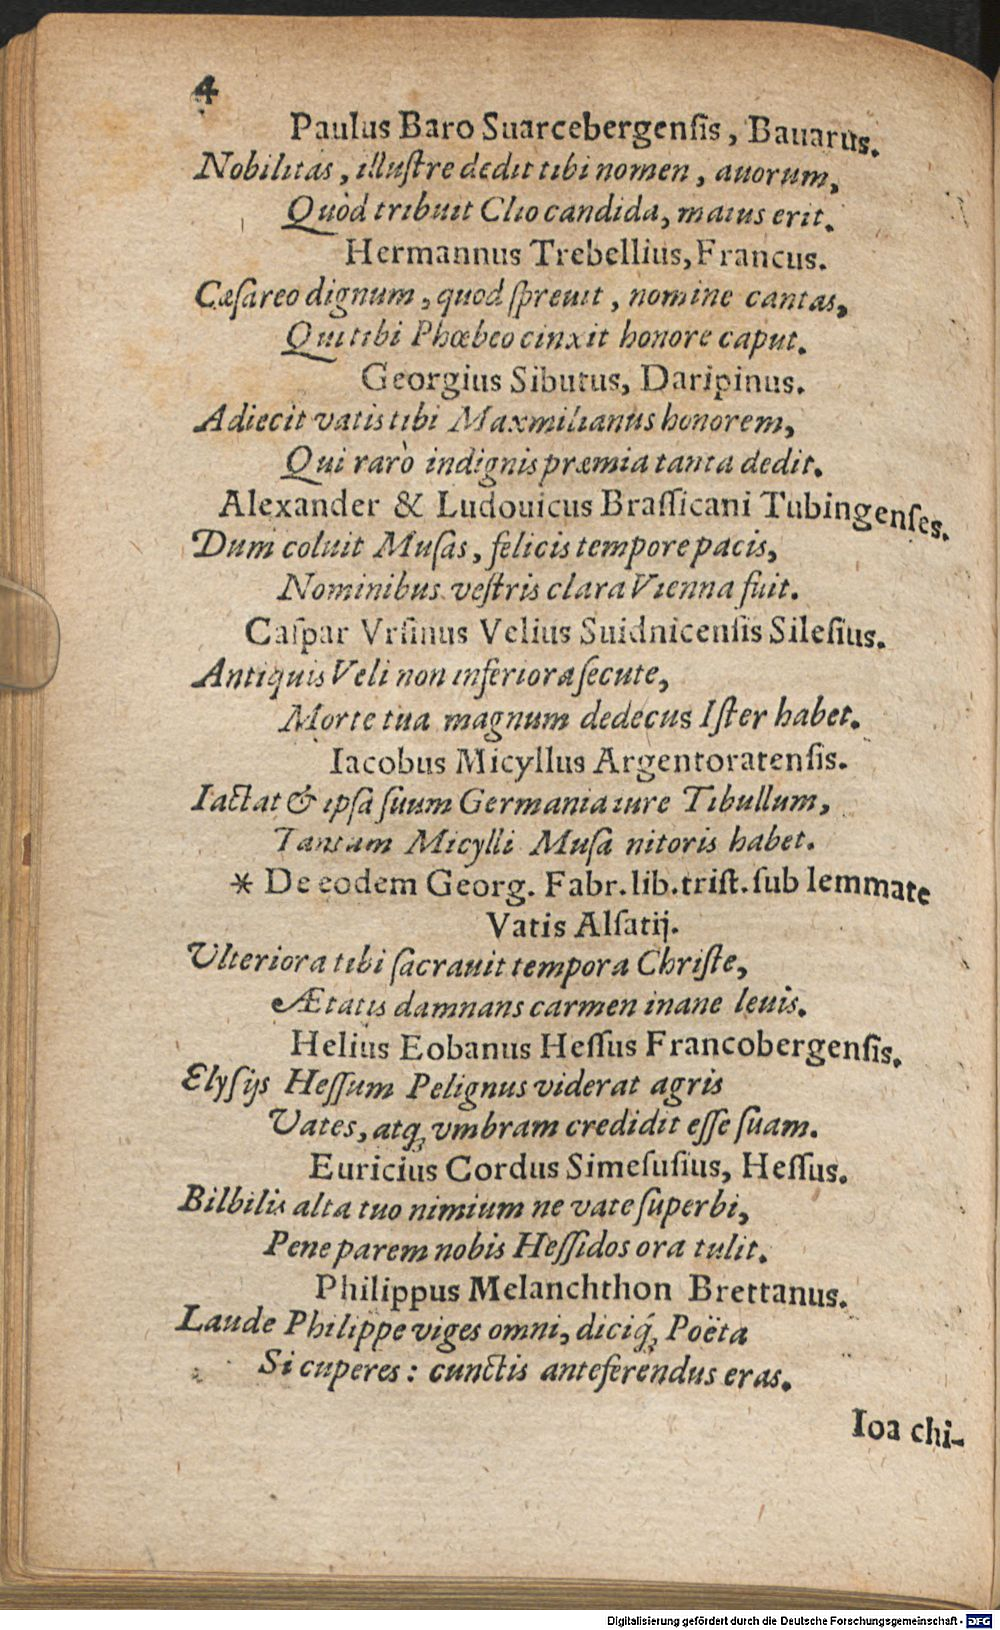 4
Paulus Baro Suarcebergenſis, Bauarus.
Nobilitas, illuſtre dedit tibi nomen, auorum,
Quòd tribuit Clio candida, maius erit.
Hermannus Trebellius, Francus.
Cæſareo dignum, quod ſpreuit, nomine cantas,
Qui tibi Phœbeo cinxit honore caput.
Georgius Sibutus, Daripinus.
Adiecit vatis tibi Maxmilianus honorem,
Qui rarò indignis præmia tanta dedit.
Alexander & Ludouicus Braſſicani Tubingenſes.
Dum coluit Muſas, felicis tempore pacis,
Nominibus veſtris clara Vienna fuit.
Caſpar Vrſinus Velius Suidnicenſis Sileſius.
Antiquis Veli non inferiora ſecute,
Morte tua magnum dedecus Iſter habet.
Iacobus Micyllus Argentoratenſis.
Iactat & ipſa ſuum Germania iure Tibullum,
Tantum Micylli Muſa nitoris habet.
* De eodem Georg. Fabr. lib. triſt. ſub lemmate
Vatis Alſatij.
Vlteriora tibi ſacrauit tempora Chriſte,
Ætatis damnans carmen inane leuis.
Helius Eobanus Heſſus Francobergenſis.
Elyſijs Heſſum Pelignus viderat agris
Vates, atq; vmbram credidit eſſe ſuam.
Euricius Cordus Simeſuſius, Heſſus.
Bilbilis alta tuo nimium ne vate ſuperbi,
Pene parem nobis Heſſidos ora tulit.
Philippus Melanchthon Brettanus.
Laude Philippe viges omni, diciq́; Poëta
Si cuperes: cunctis anteferendus eras.
Ioa chi-
Digitalisierung gefördert durch die Deutsche Forschungsgemeinschaft - DFG